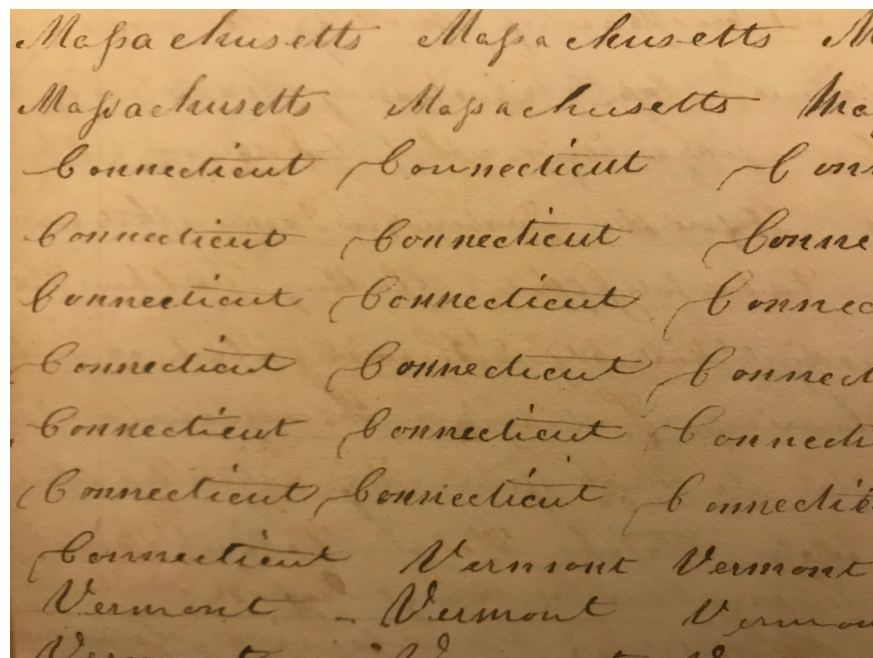 Massachusetts Massachusetts M
Massachusetts Massachusetts Ma
Connecticut Connecticut Con
Connecticut Connecticut Conne
Connecticut Connecticut Connec
Connecticut Connecticut Connect
Connecticut Connecticut Connecti
Connecticut Connecticut Connectic
Connecticut Vermont Vermont
Vermont Vermont Vermon